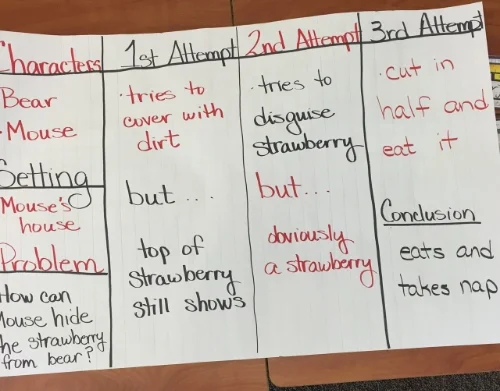 Characters
Bear
· Mouse
Setting
Mouse's
house
Problem
How can
Mouse hide
the strawberry
from bear?
1st Attempt
· tries to
cover with
dirt
but ...
top of
strawberry
still shows
2nd Attempt
· tries to
disguise
strawberry
but...
obviously
a strawberry
3rd Attempt
· cut in
half and
eat it
Conclusion
eats and
takes nap